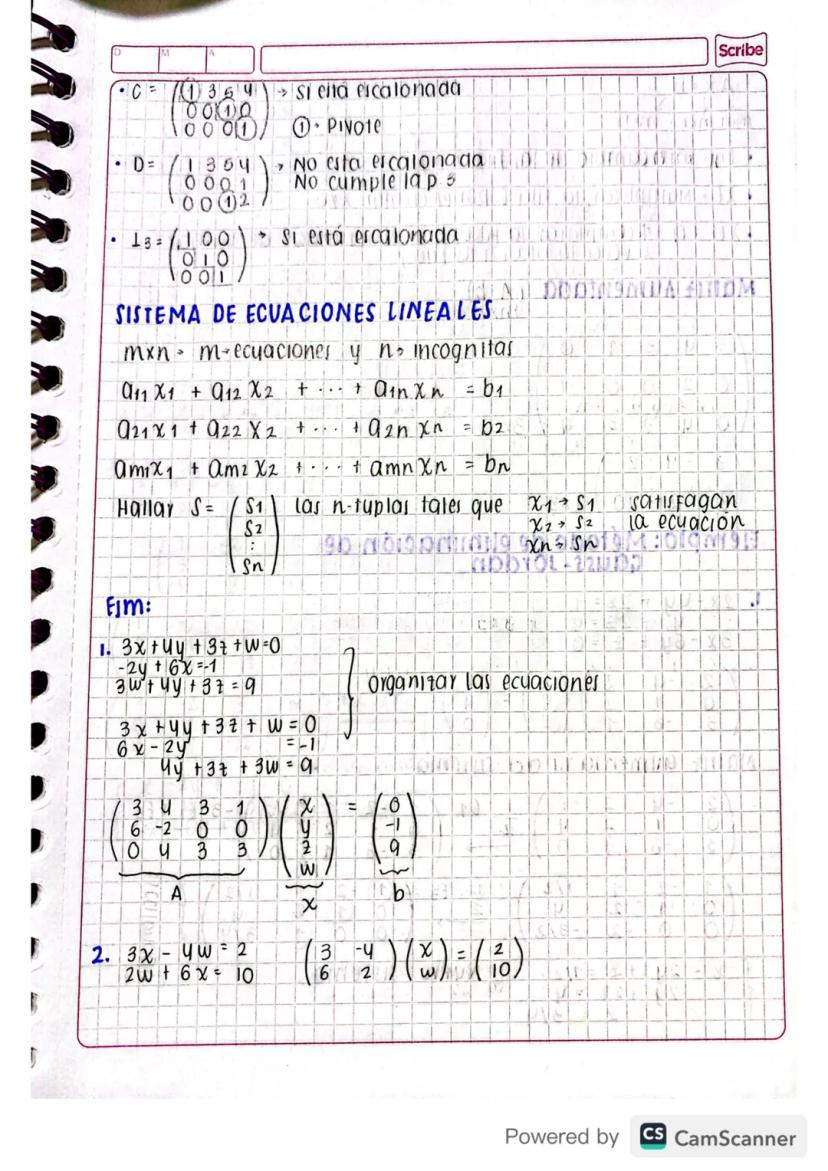 D M A
Scribe
• C = ( 1 3 5 4 ) → Si está escalonada
0 0 1 0
0 0 0 1 ① → Pivote
• D = ( 1 3 5 4 ) → No esta escalonada
0 0 0 1 No cumple la p 3
0 0 1 2
• I3 = ( 1 0 0 ) → Si está escalonada
0 1 0
0 0 1
SISTEMA DE ECUACIONES LINEALES
mxn → m→ecuaciones y n→ incognitas
a11 x1 + a12 x2 + ... + a1n xn = b1
a21 x1 + a22 x2 + ... + a2n xn = b2
am1 x1 + am2 x2 + ... + amn xn = bn
Hallar S = ( S1 S2 : Sn ) las n-tuplas tales que x1 → S1 satisfagan
x2 → S2 la ecuación
xn → Sn
EJM:
1. 3x + 4y + 3z + w = 0
-2y + 6x = -1
3w + 4y + 3z = 9
organizar las ecuaciones
3x + 4y + 3z + w = 0
6x - 2y = -1
4y + 3z + 3w = 9
( 3 4 3 -1 ) ( x ) = ( 0 )
6 -2 0 0 y -1
0 4 3 3 z 9
w
A x b
2. 3x - 4w = 2 ( 3 -4 ) ( x ) = ( 2 )
2w + 6x = 10 6 2 w 10
Powered by CS CamScanner